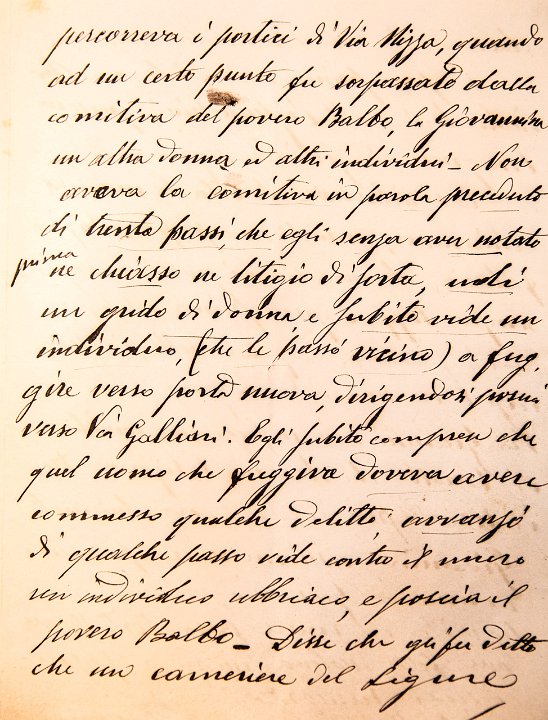 percorreva i portici di Via Nizza, quando
ad un certo punto fu sorpassato dalla
comitiva del povero Balbo, la Giovannina
un altra donna ed altri individui _ Non
aveva la comitiva in parola preceduto
di trenta passi, che egli senza aver notato
prima
ne chiasso ne litigio di sorta, udì
un grido di donna e subito vide un
individuo, (che le passò vicino) a fug,
gire verso porta nuova, dirigendosi poscia
verso Via Galliari. Egli subito comprese che
quel uomo che fuggiva doveva avere
commesso qualche delitto, avanzò
di qualche passo vide contro il muro
un individuo ubbriaco, e poscia il
povero Balbo _ Disse che gli fu detto
che un cameriere del Ligure